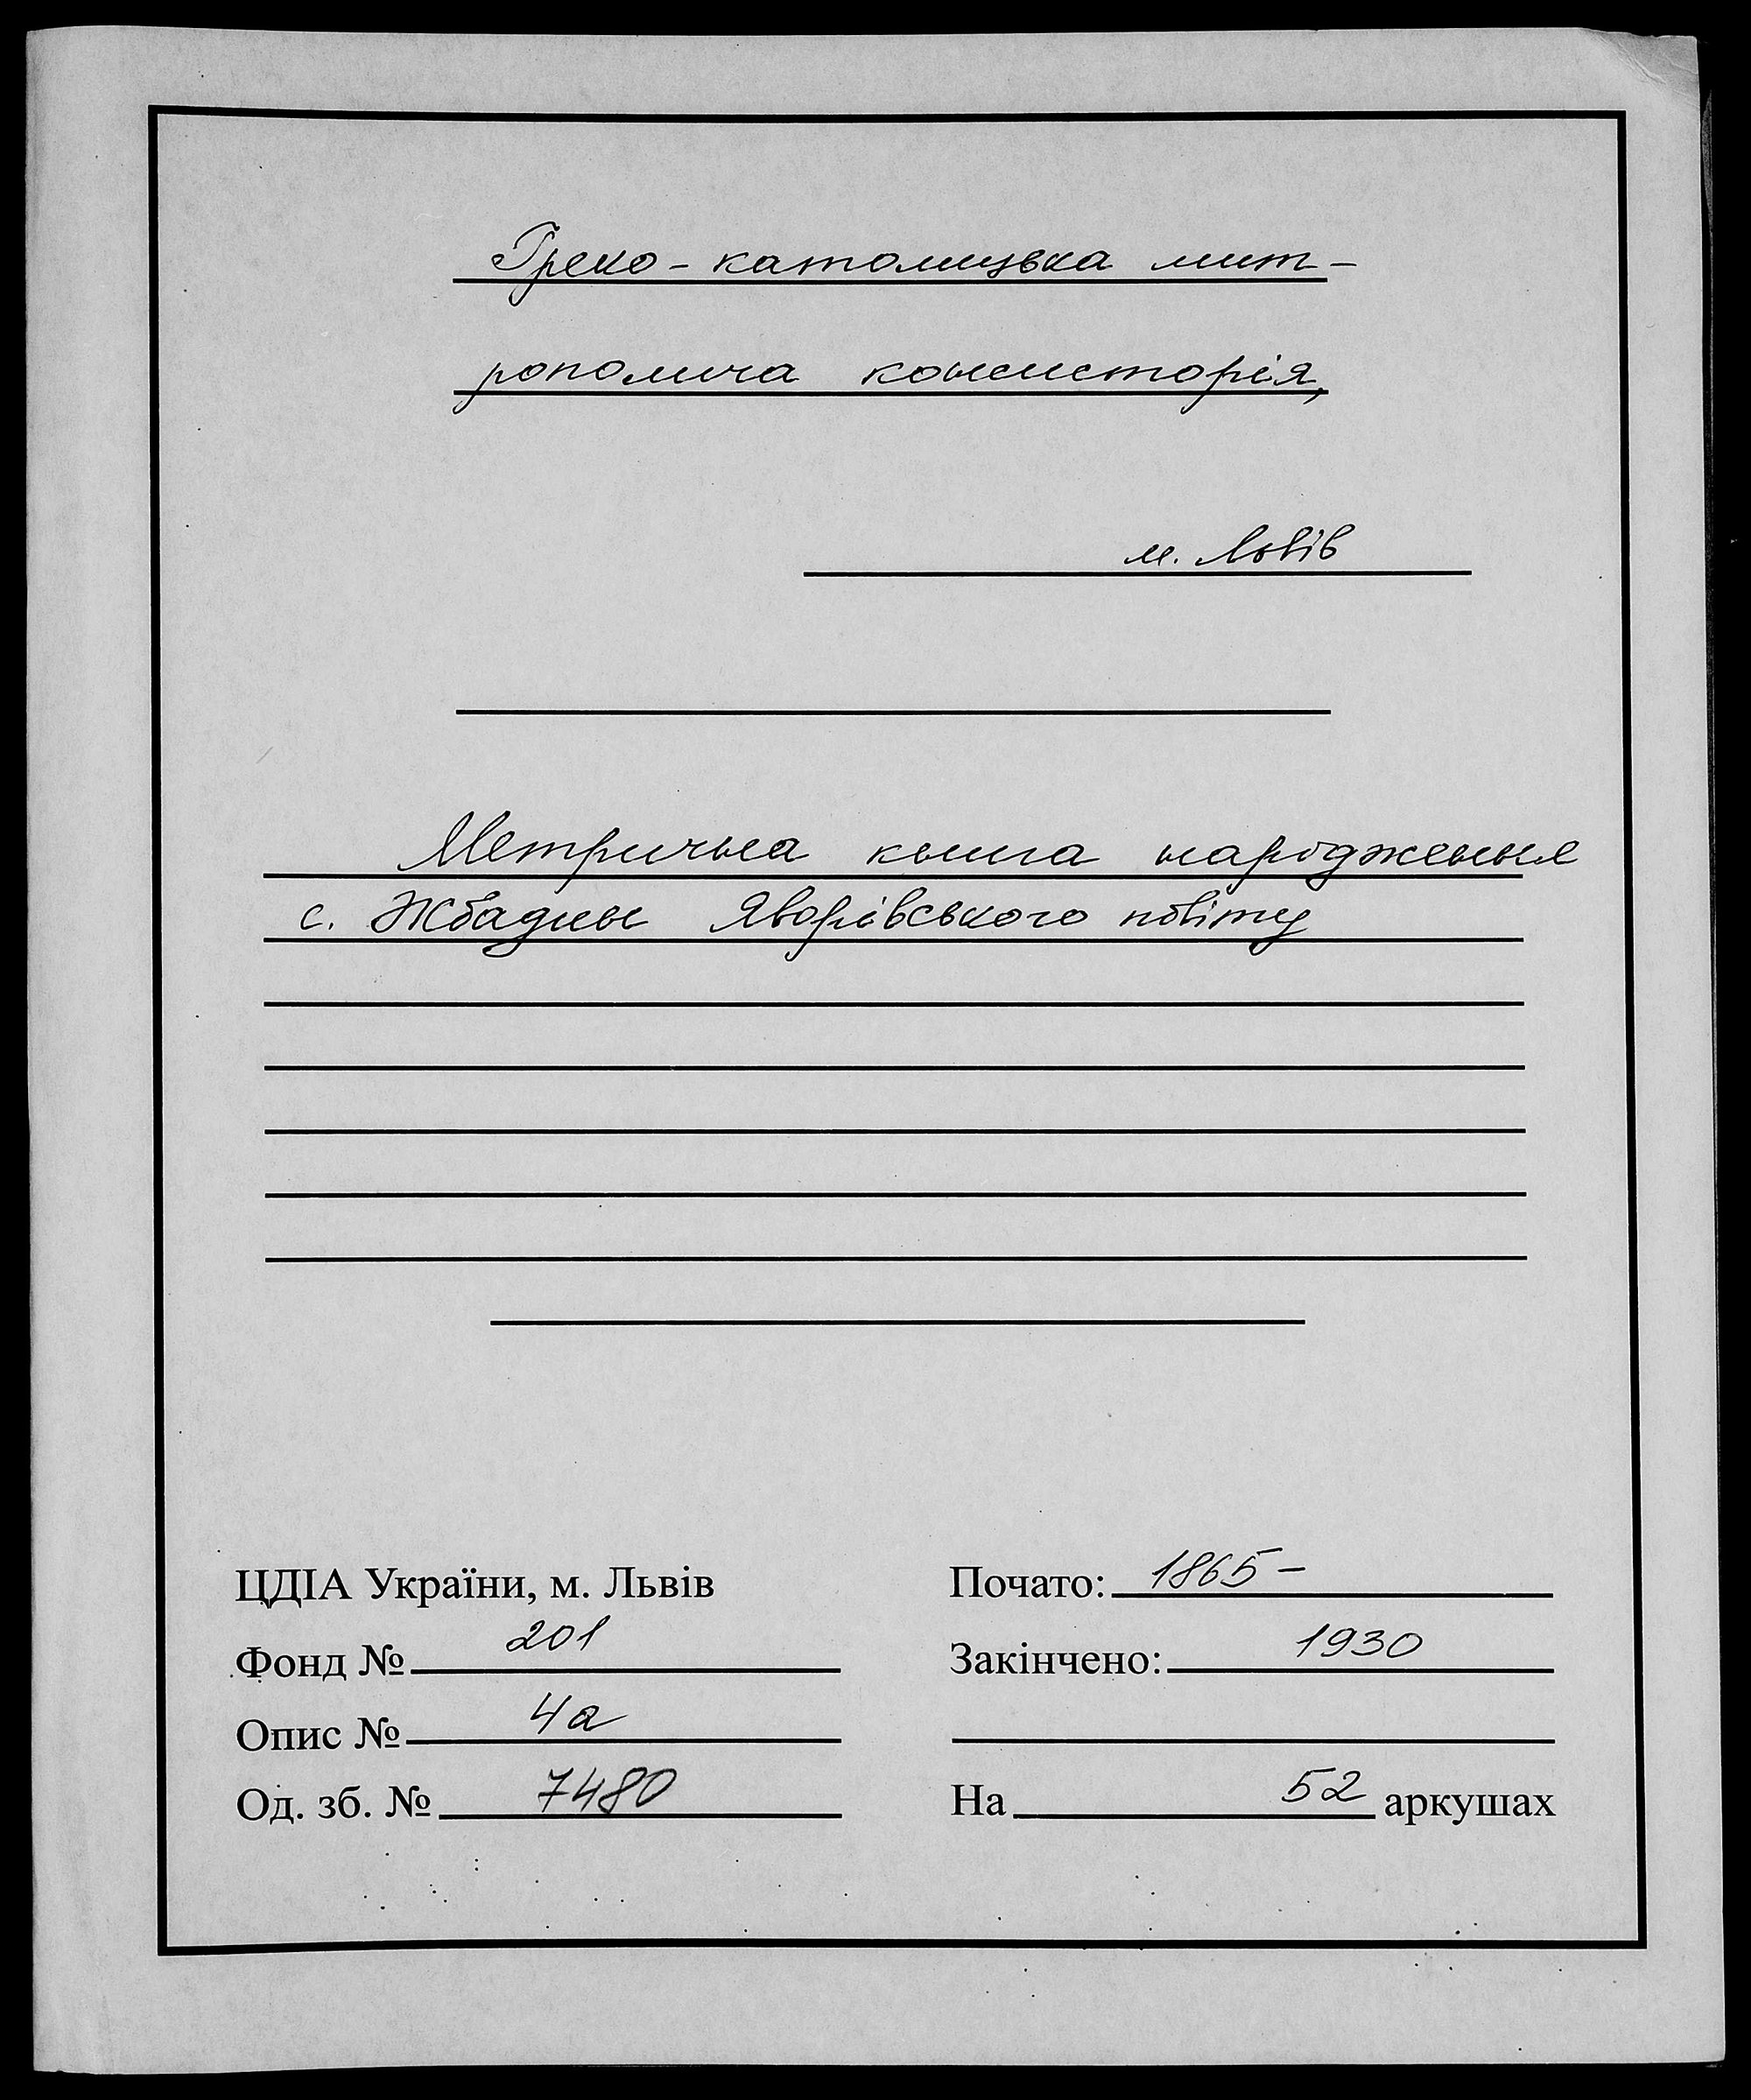 Греко-католицька мит-
рополича консисторія,
м. Львів
Метрична книга народження
с. Жбадин Яворівського повіту
ЦДІА України, м. Львів
Фонд № 201
Опис № 4а
Од. зб. № 7480
Почато: 1865-
Закінчено: 1930
На 52 аркушах